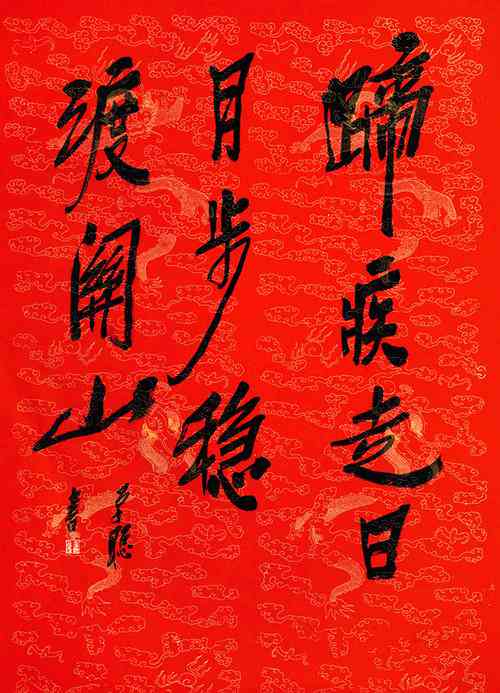 蹄疾走日
月步稳
渡關山
書